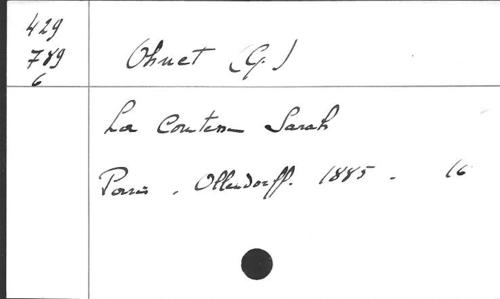 429
789
6
Ohnet (G.)
La Comtesse Sarah
Paris. Ollendorff. 1885. 16